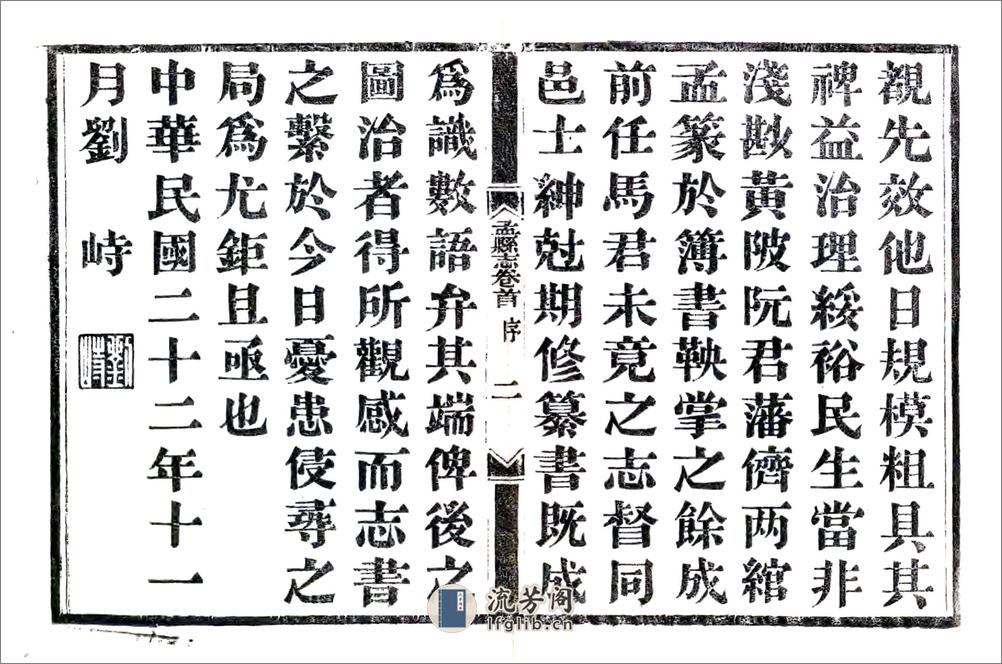 觀先效他日規模粗具其
裨益治理綏裕民生當非
淺尠黃陂阮君藩儕两綰
孟篆於簿書鞅掌之餘成
前任馬君未竟之志督同
邑士紳尅期修纂書既成
孟縣志卷首 序 二
爲識數語弁其端俾後之
圖治者得所觀感而志書
之繫於今日憂患侵尋之
局爲尤鉅且亟也
中華民國二十二年十一
月劉 峙
劉峙
流芳阁
lfglib.cn